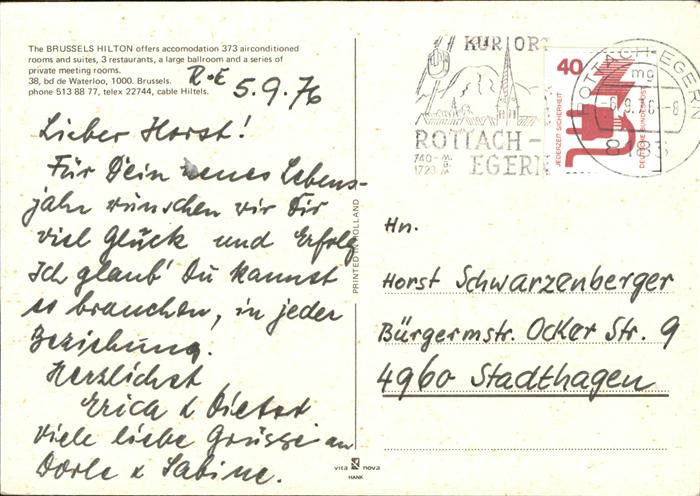 The BRUSSELS HILTON offers accomodation 373 airconditioned
rooms and suites, 3 restaurants, a large ballroom and a series of
private meeting rooms.
38, bd de Waterloo, 1000. Brussels.
phone 513 88 77, telex 22744, cable Hiltels.
R.E 5.9.76
Lieber Horst!
Für Dein neues Lebens-
jahr wünschen wir Dir
viel Glück und Erfolg
Ich glaub' Du kannst
es brauchen, in jeder
Beziehung.
Herzlichst
Erica & Dieter
Viele liebe Grüsse an
Dorle & Sabine.
PRINTED IN HOLLAND
vita nova
HANK
KURORT
ROTTACH-
EGERN
740-
1723 m
40
JEDERZEIT SICHERHEIT
DEUTSCHE BUNDESPOST
ROTTACH-EGERN
mg
-6.9.76-8
Hn.
Horst Schwarzenberger
Bürgermstr. Ocker Str. 9
4960 Stadthagen